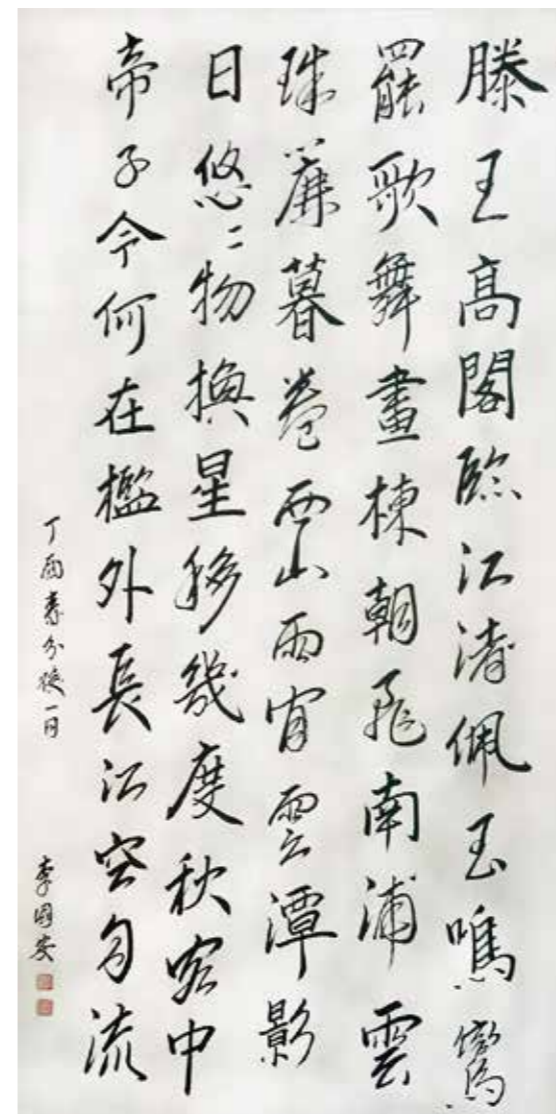 滕王髙閣臨江渚佩玉鳴鸞
罷歌舞畫棟朝飛南浦雲
珠簾暮卷西山雨閒雲潭影
日悠〻物換星移幾度秋閣中
帝子今何在檻外長江空自流
丁酉春分後一日
李國安